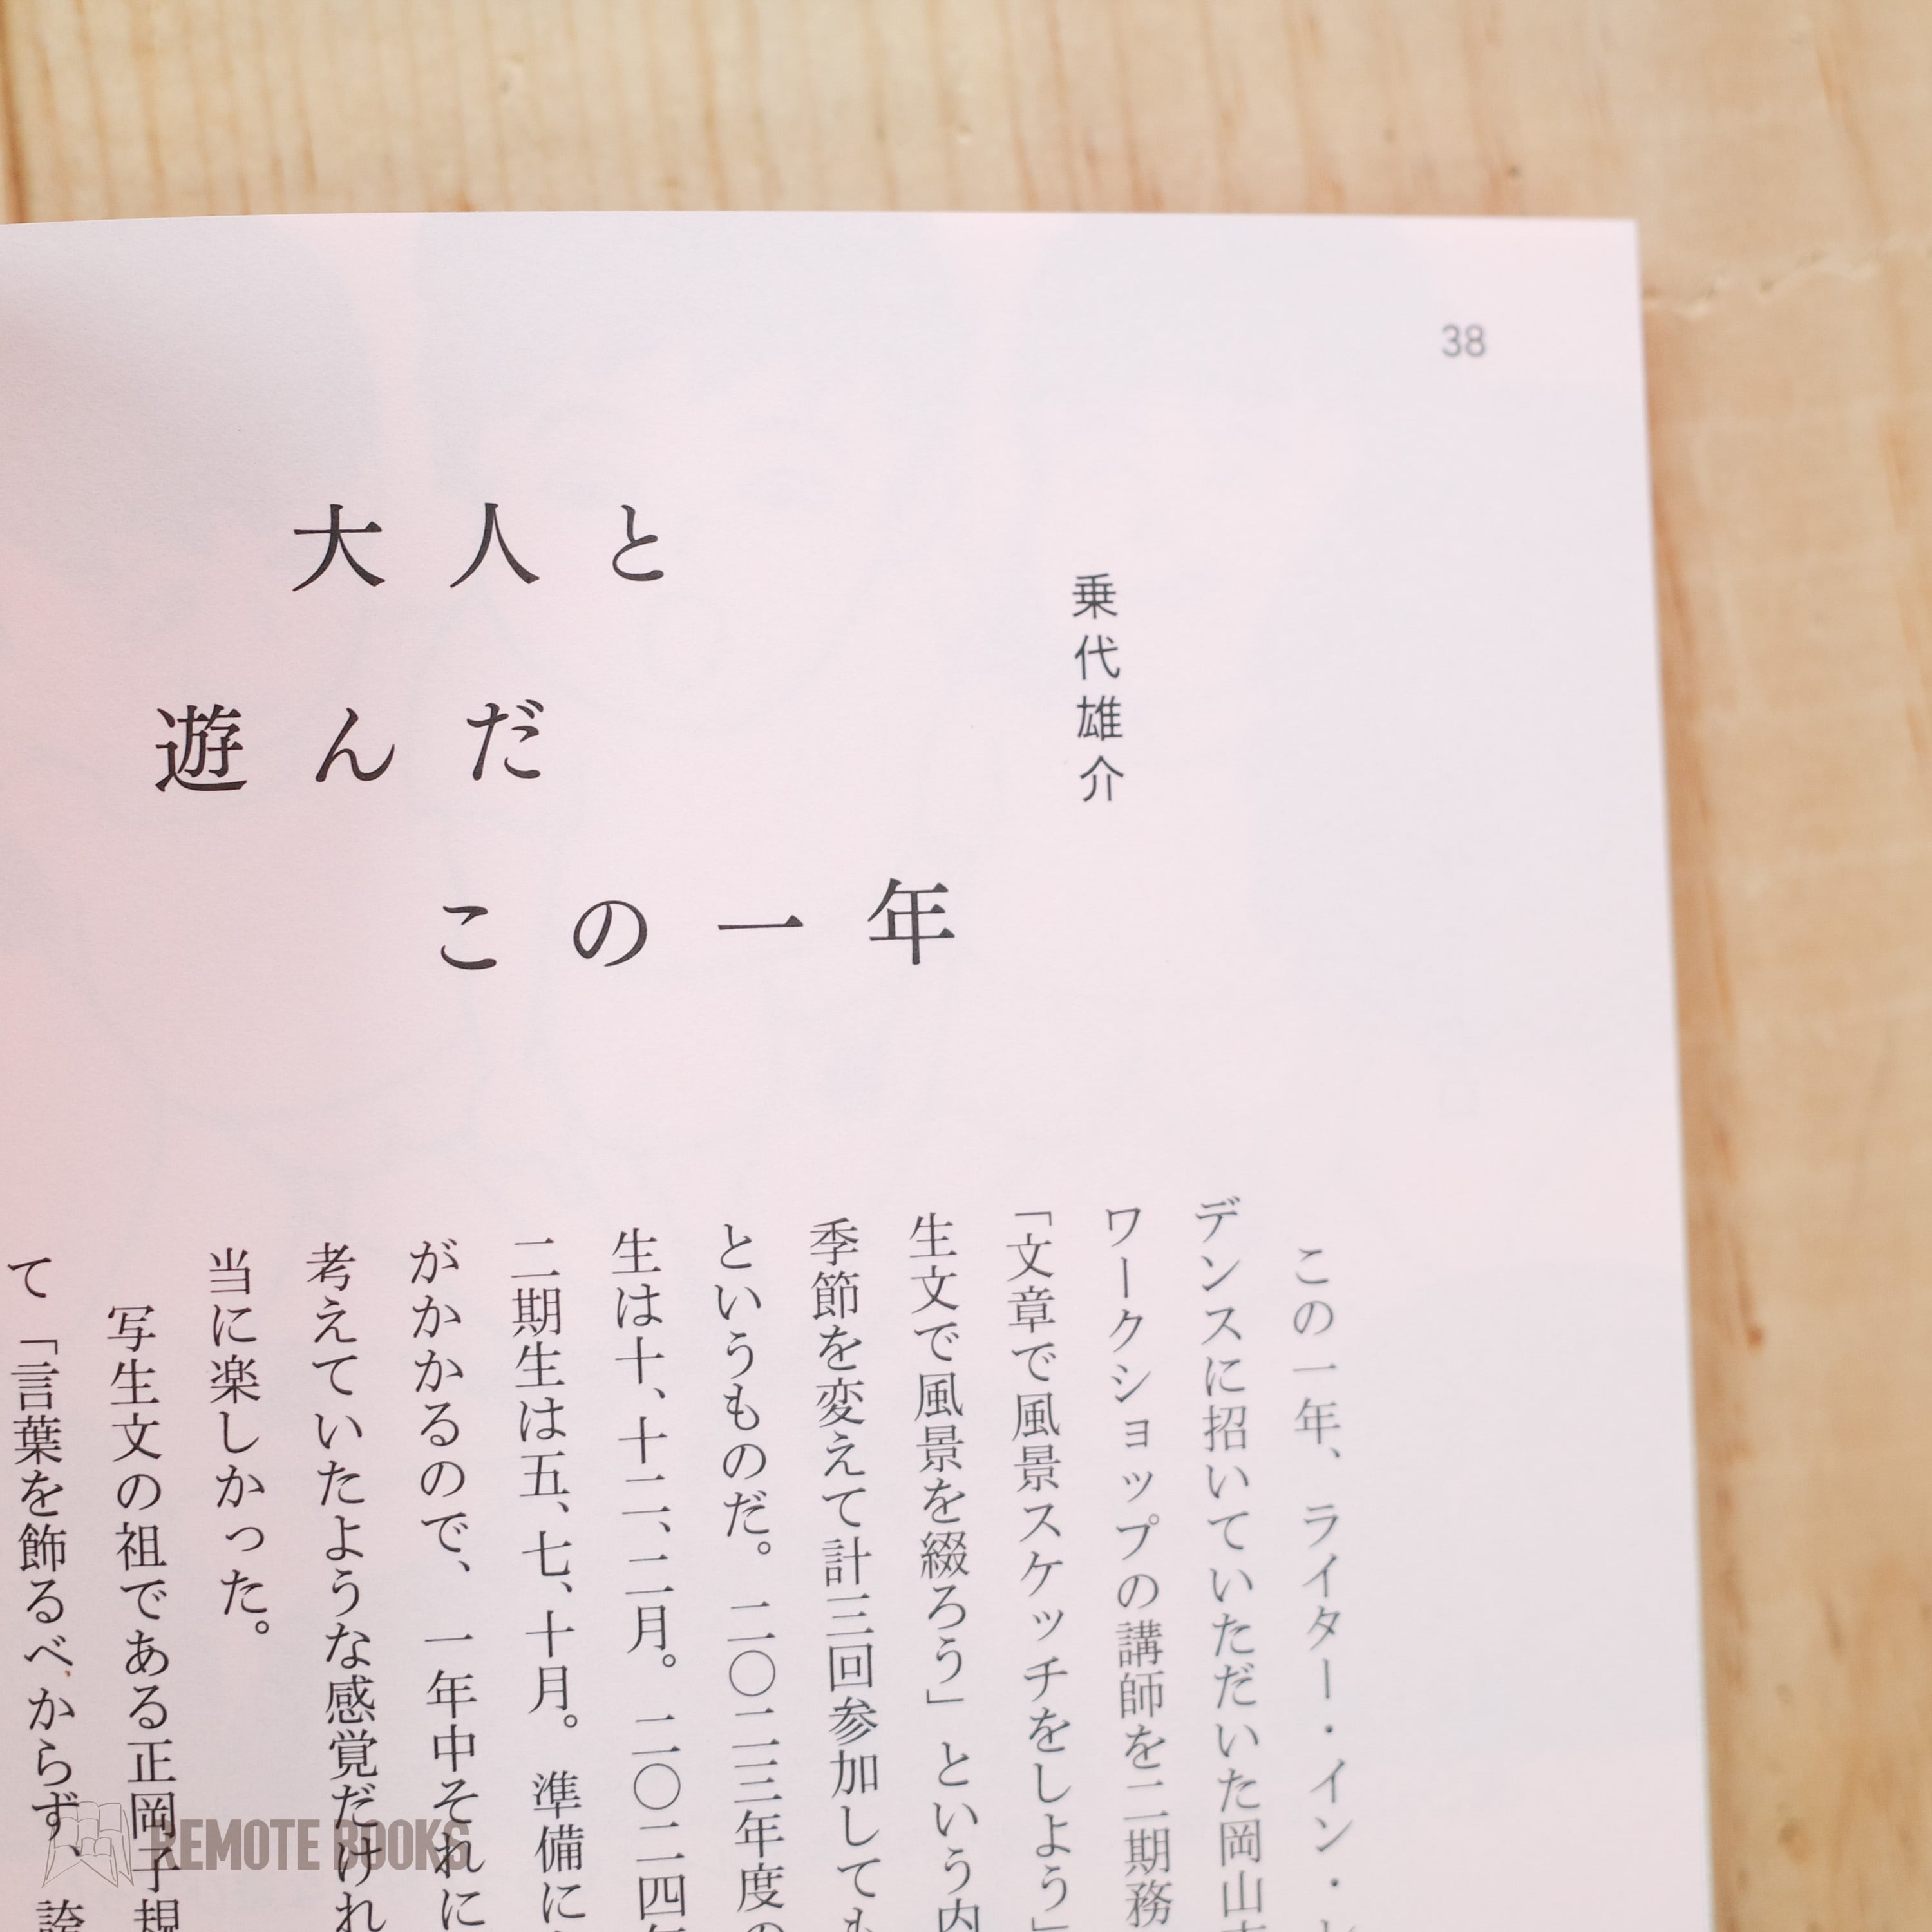 38
大人と
遊んだ
この一年
乗代雄介
この一年、ライター・イン・レ
デンスに招いていただいた岡山
ワークショップの講師を二期務
「文章で風景スケッチをしよう」
生文で風景を綴ろう」という内
季節を変えて計三回参加しても
というものだ。二〇二三年度の
生は十、十二、二月。二〇二四年
二期生は五、七、十月。準備に
がかかるので、一年中それに
考えていたような感覚だけれ
当に楽しかった。
写生文の祖である正岡子規
て「言葉を飾るべからず、誇
REMOTE BOOKS